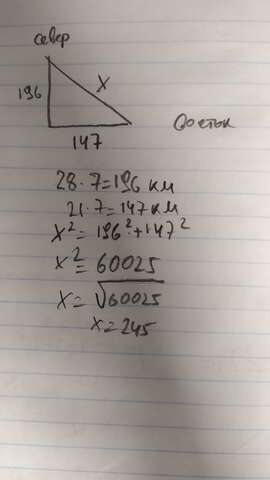 север
196
x
147
восток
28·7=196 км
21·7=147 км
x²=196²+147²
x²=60025
x=√60025
x=245